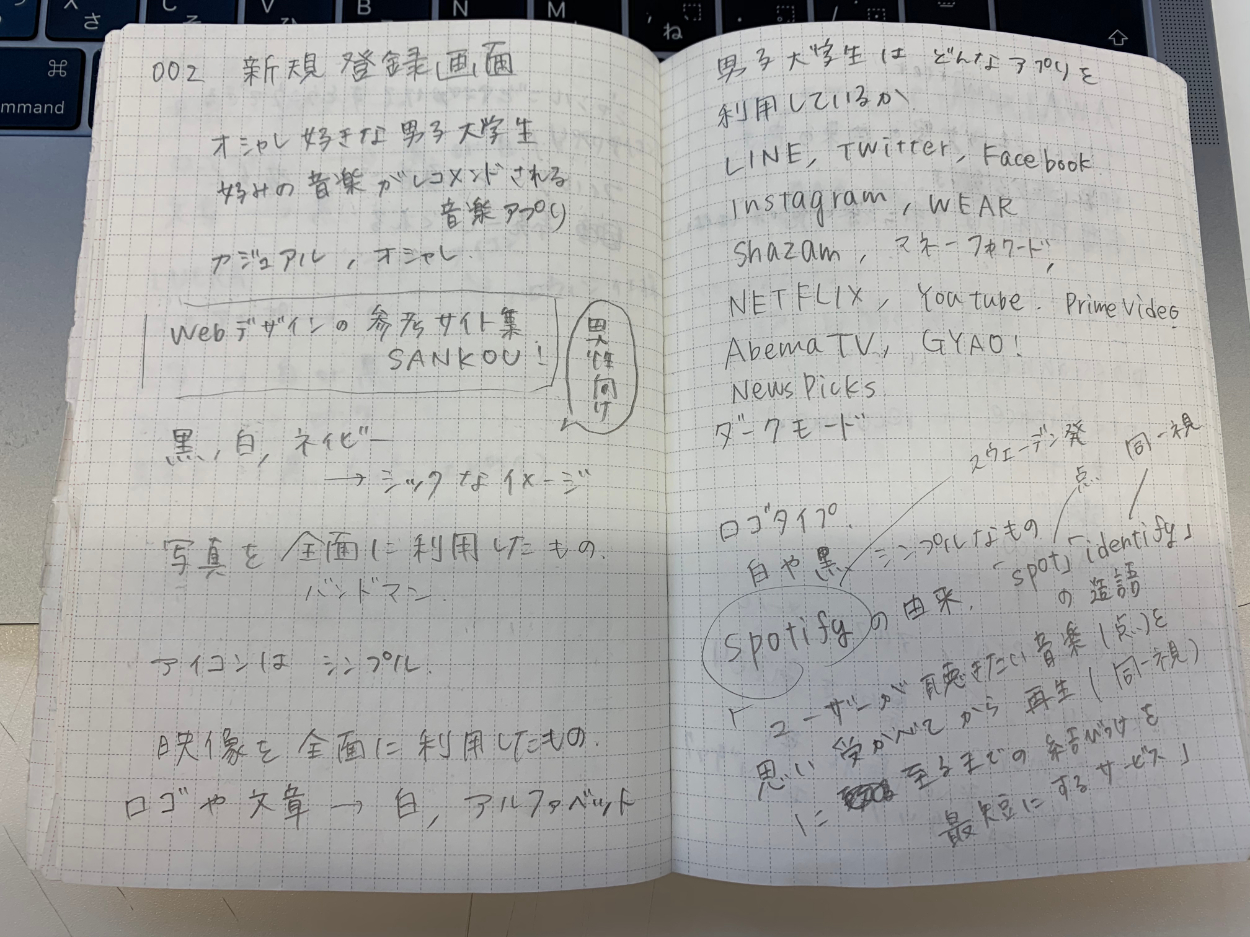 002 新規登録画面
オシャレ好きな男子大学生
好みの音楽がレコメンドされる
音楽アプリ
カジュアル, オシャレ
Webデザインの参考サイト集
SANKOU!
男性向け
黒, 白, ネイビー
→ シックなイメージ
写真を全面に利用したもの.
バンドマン
アイコンは シンプル.
映像を全面に利用したもの.
ロゴや文章 → 白, アルファベット
男子大学生は どんなアプリを
利用しているか
LINE, Twitter, Facebook
Instagram, WEAR
Shazam, マネーフォワード,
NETFLIX, Youtube. Prime Video
Abema TV, GYAO!
News Picks
ダークモード
スウェーデン発
点
同一視
ロゴタイプ.
白や黒, シンプルなもの
Spotify の由来. 「spot」「identify」
の造語
「ユーザーが聴きたい音楽(点)を
思い浮かべてから 再生(同一視)
に 至るまでの 結びつけを
最短にするサービス」
command
⌘
X
さ
C
V
B
N
M
ね